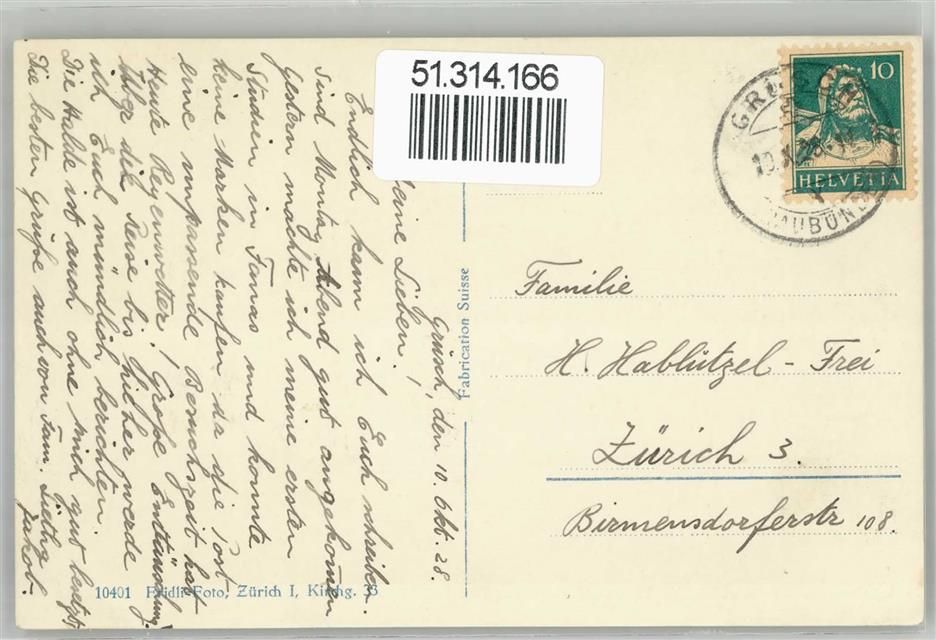 51.314.166
Grüsch, den 10. Okt. 28.
Meine Lieben!
Endlich kann ich Euch schreiben.
Sind Montag Abend gut angekommen
Gestern machte ich meine ersten
Studien in Fanas und konnte
keine Marken kaufen da die Post
eine unpassende Besuchszeit hat
Heute Regenwetter! Große Enttäuschung!
Über die Reise bis hieher werde
ich Euch mündlich berichten.
Die Halde ist auch ohne mich gut
Die besten Grüße auch von Fam.
Jakob.
10401 Fridli-Foto, Zürich I, Kirchg. 33
Fabrication Suisse
10
HELVETIA
GRÜSCH
10.X.28
GRAUBÜNDEN
Familie
H. Hablützel-Frei
Zürich 3.
Birmensdorferstr 108.